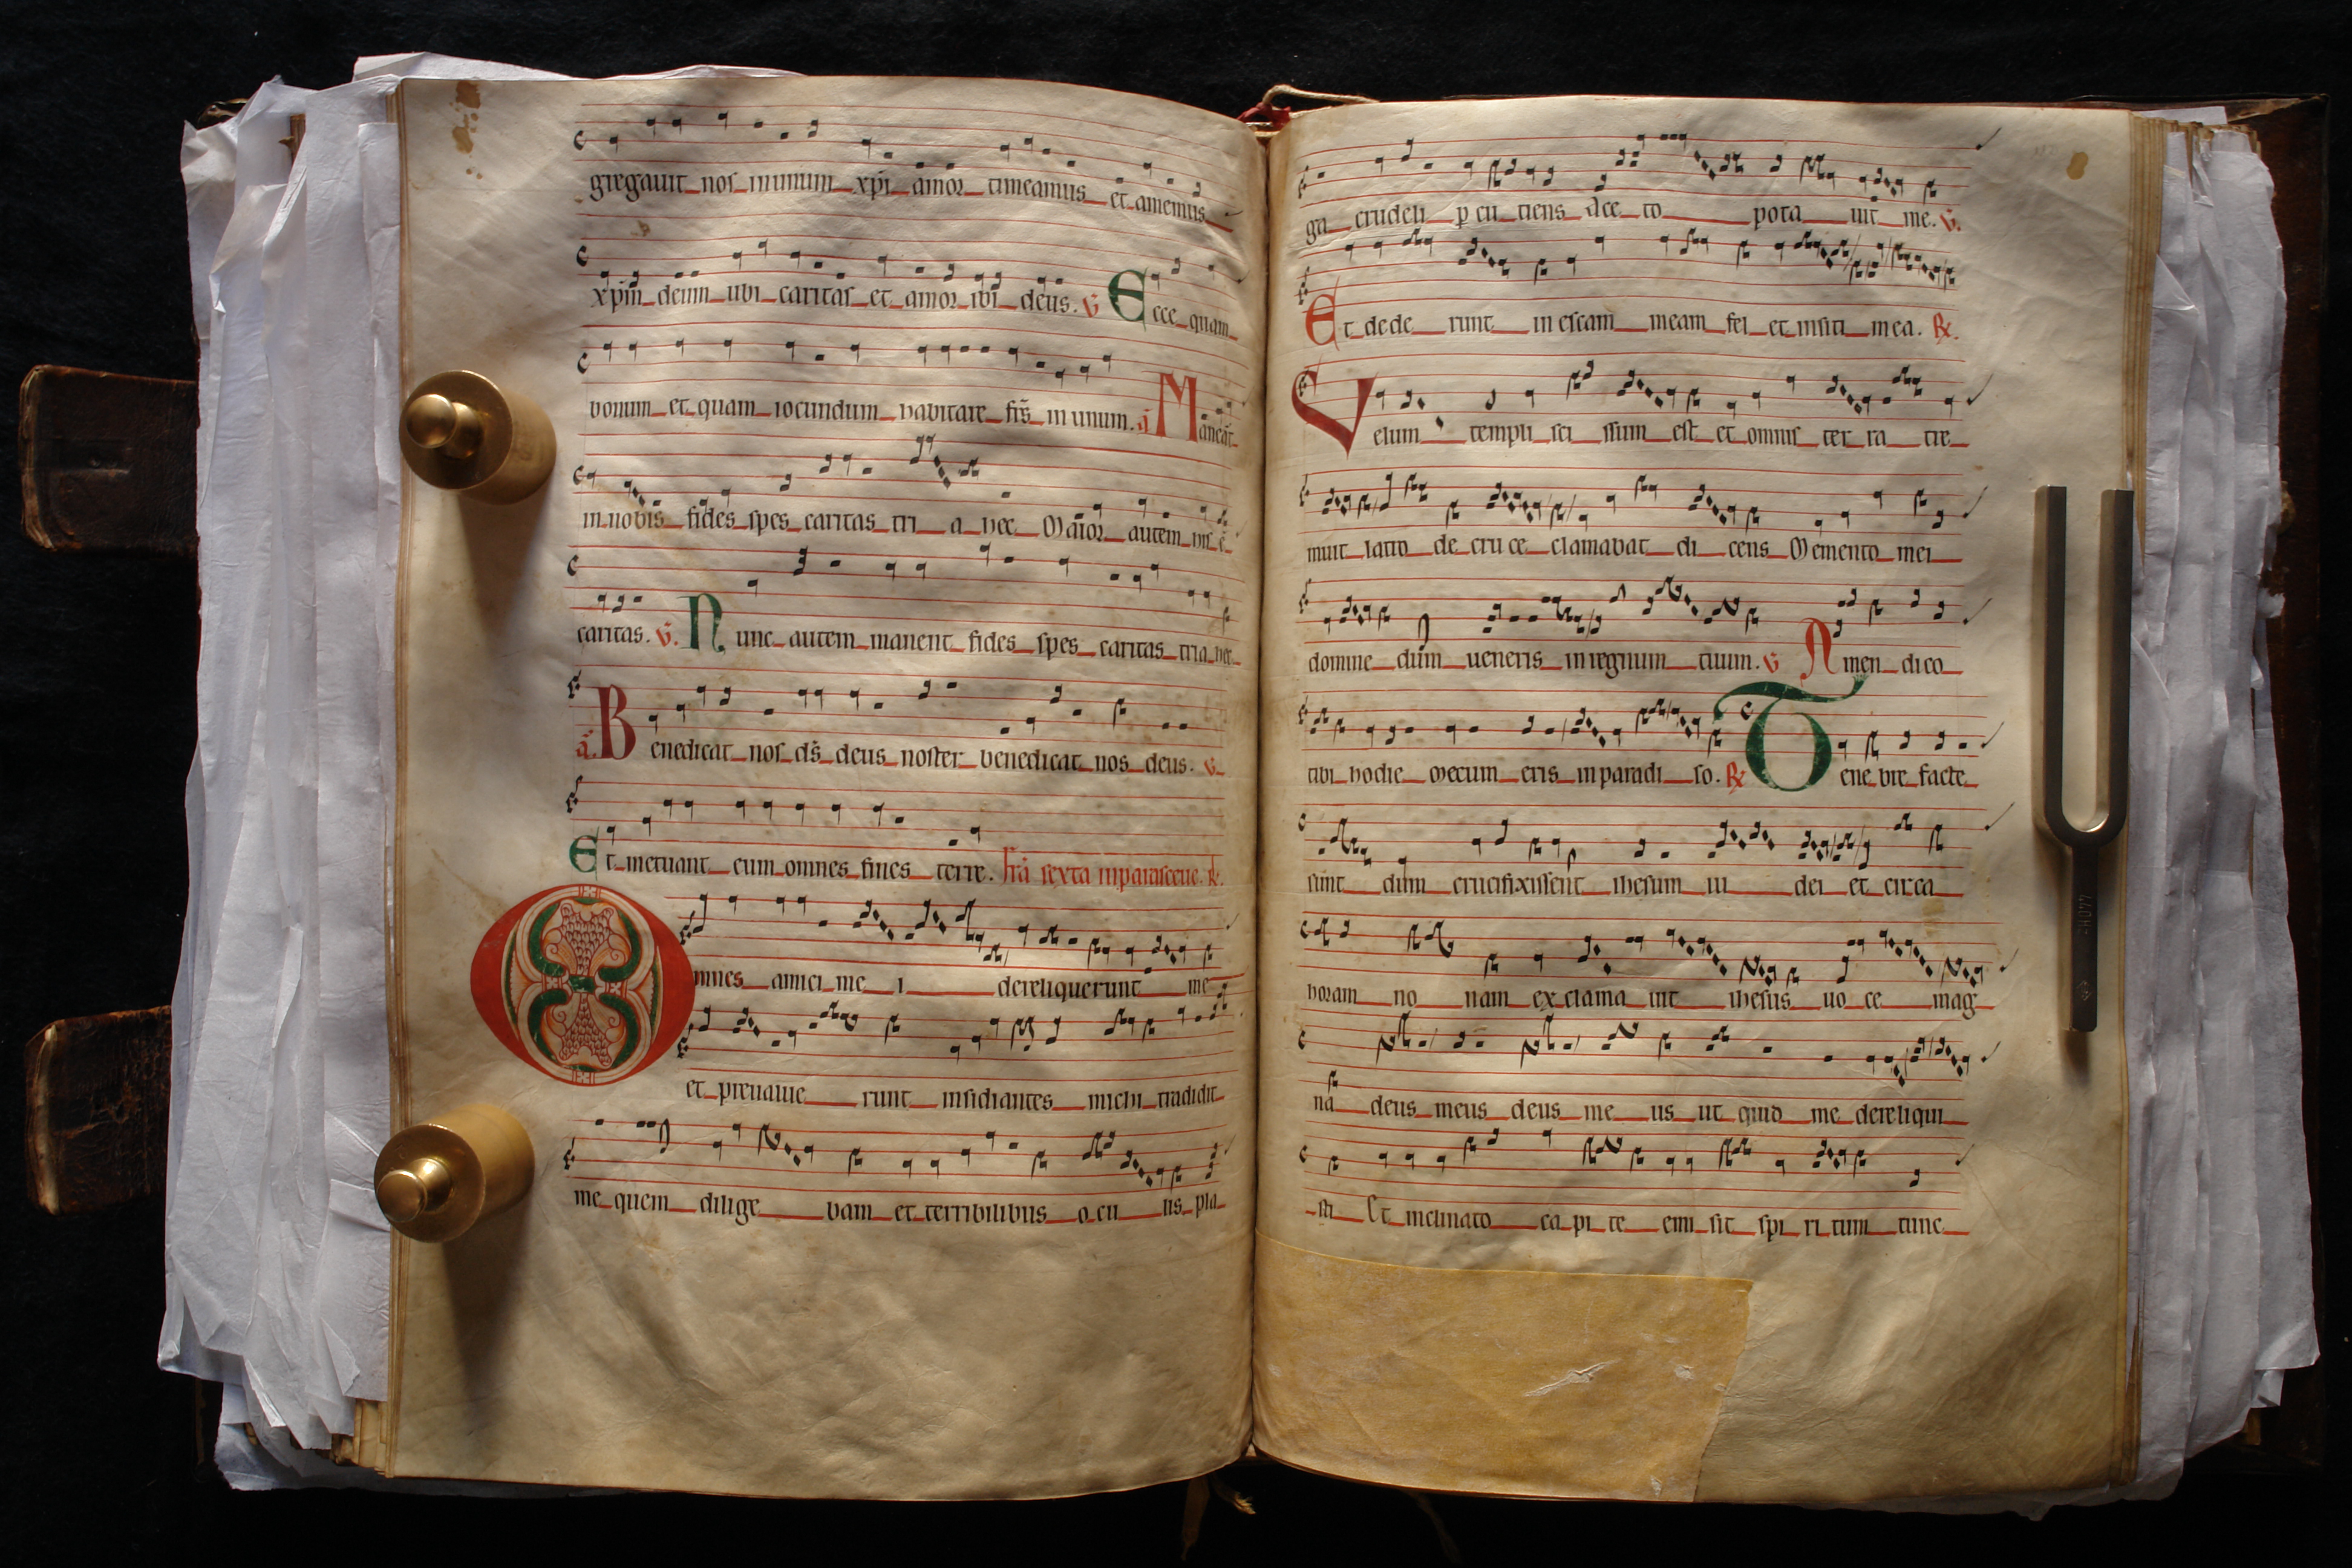 gregavit nos in unum xp̄i amor timeamus et amemus
xp̄m deum ubi caritas et amor ibi deus. v̄ Ecce quam
bonum et quam iocundum habitare fr̄s in unum. a̅ Maneat
in nobis fides spes caritas tri a hec Maior autem his ē
caritas. v̄. Nunc autem manent fides spes caritas tria hec
a̅. Benedicat nos ds̄ deus noster benedicat nos deus. v̄
Et metuant eum omnes fines terre. fr̄a sexta in parasceue. ℟.
Omnes amici me i dereliquerunt me
et preualue runt insidiantes michi tradidit
me quem dilige bam et terribilibus o cu lis pla
ga crudeli p cu tiens Ace to pota uit me. v̄.
Et dede runt in escam meam fel et in siti mea. ℟.
Velum templi sci ssum est et omnis ter ra tre
muit latro de cru ce clamabat di cens Memento mei
domine dum ueneris in regnum tuum. v̄ Amen dico
tibi hodie mecum eris in paradi so. ℟ Tene bre facte
sunt dum crucifixissent ihesum iu dei et circa
horam no nam ex clama uit ihesus uo ce mag
na deus meus deus me us ut quid me dereliqui
sti Et inclinato ca pi te emi sit spi ri tum tunc